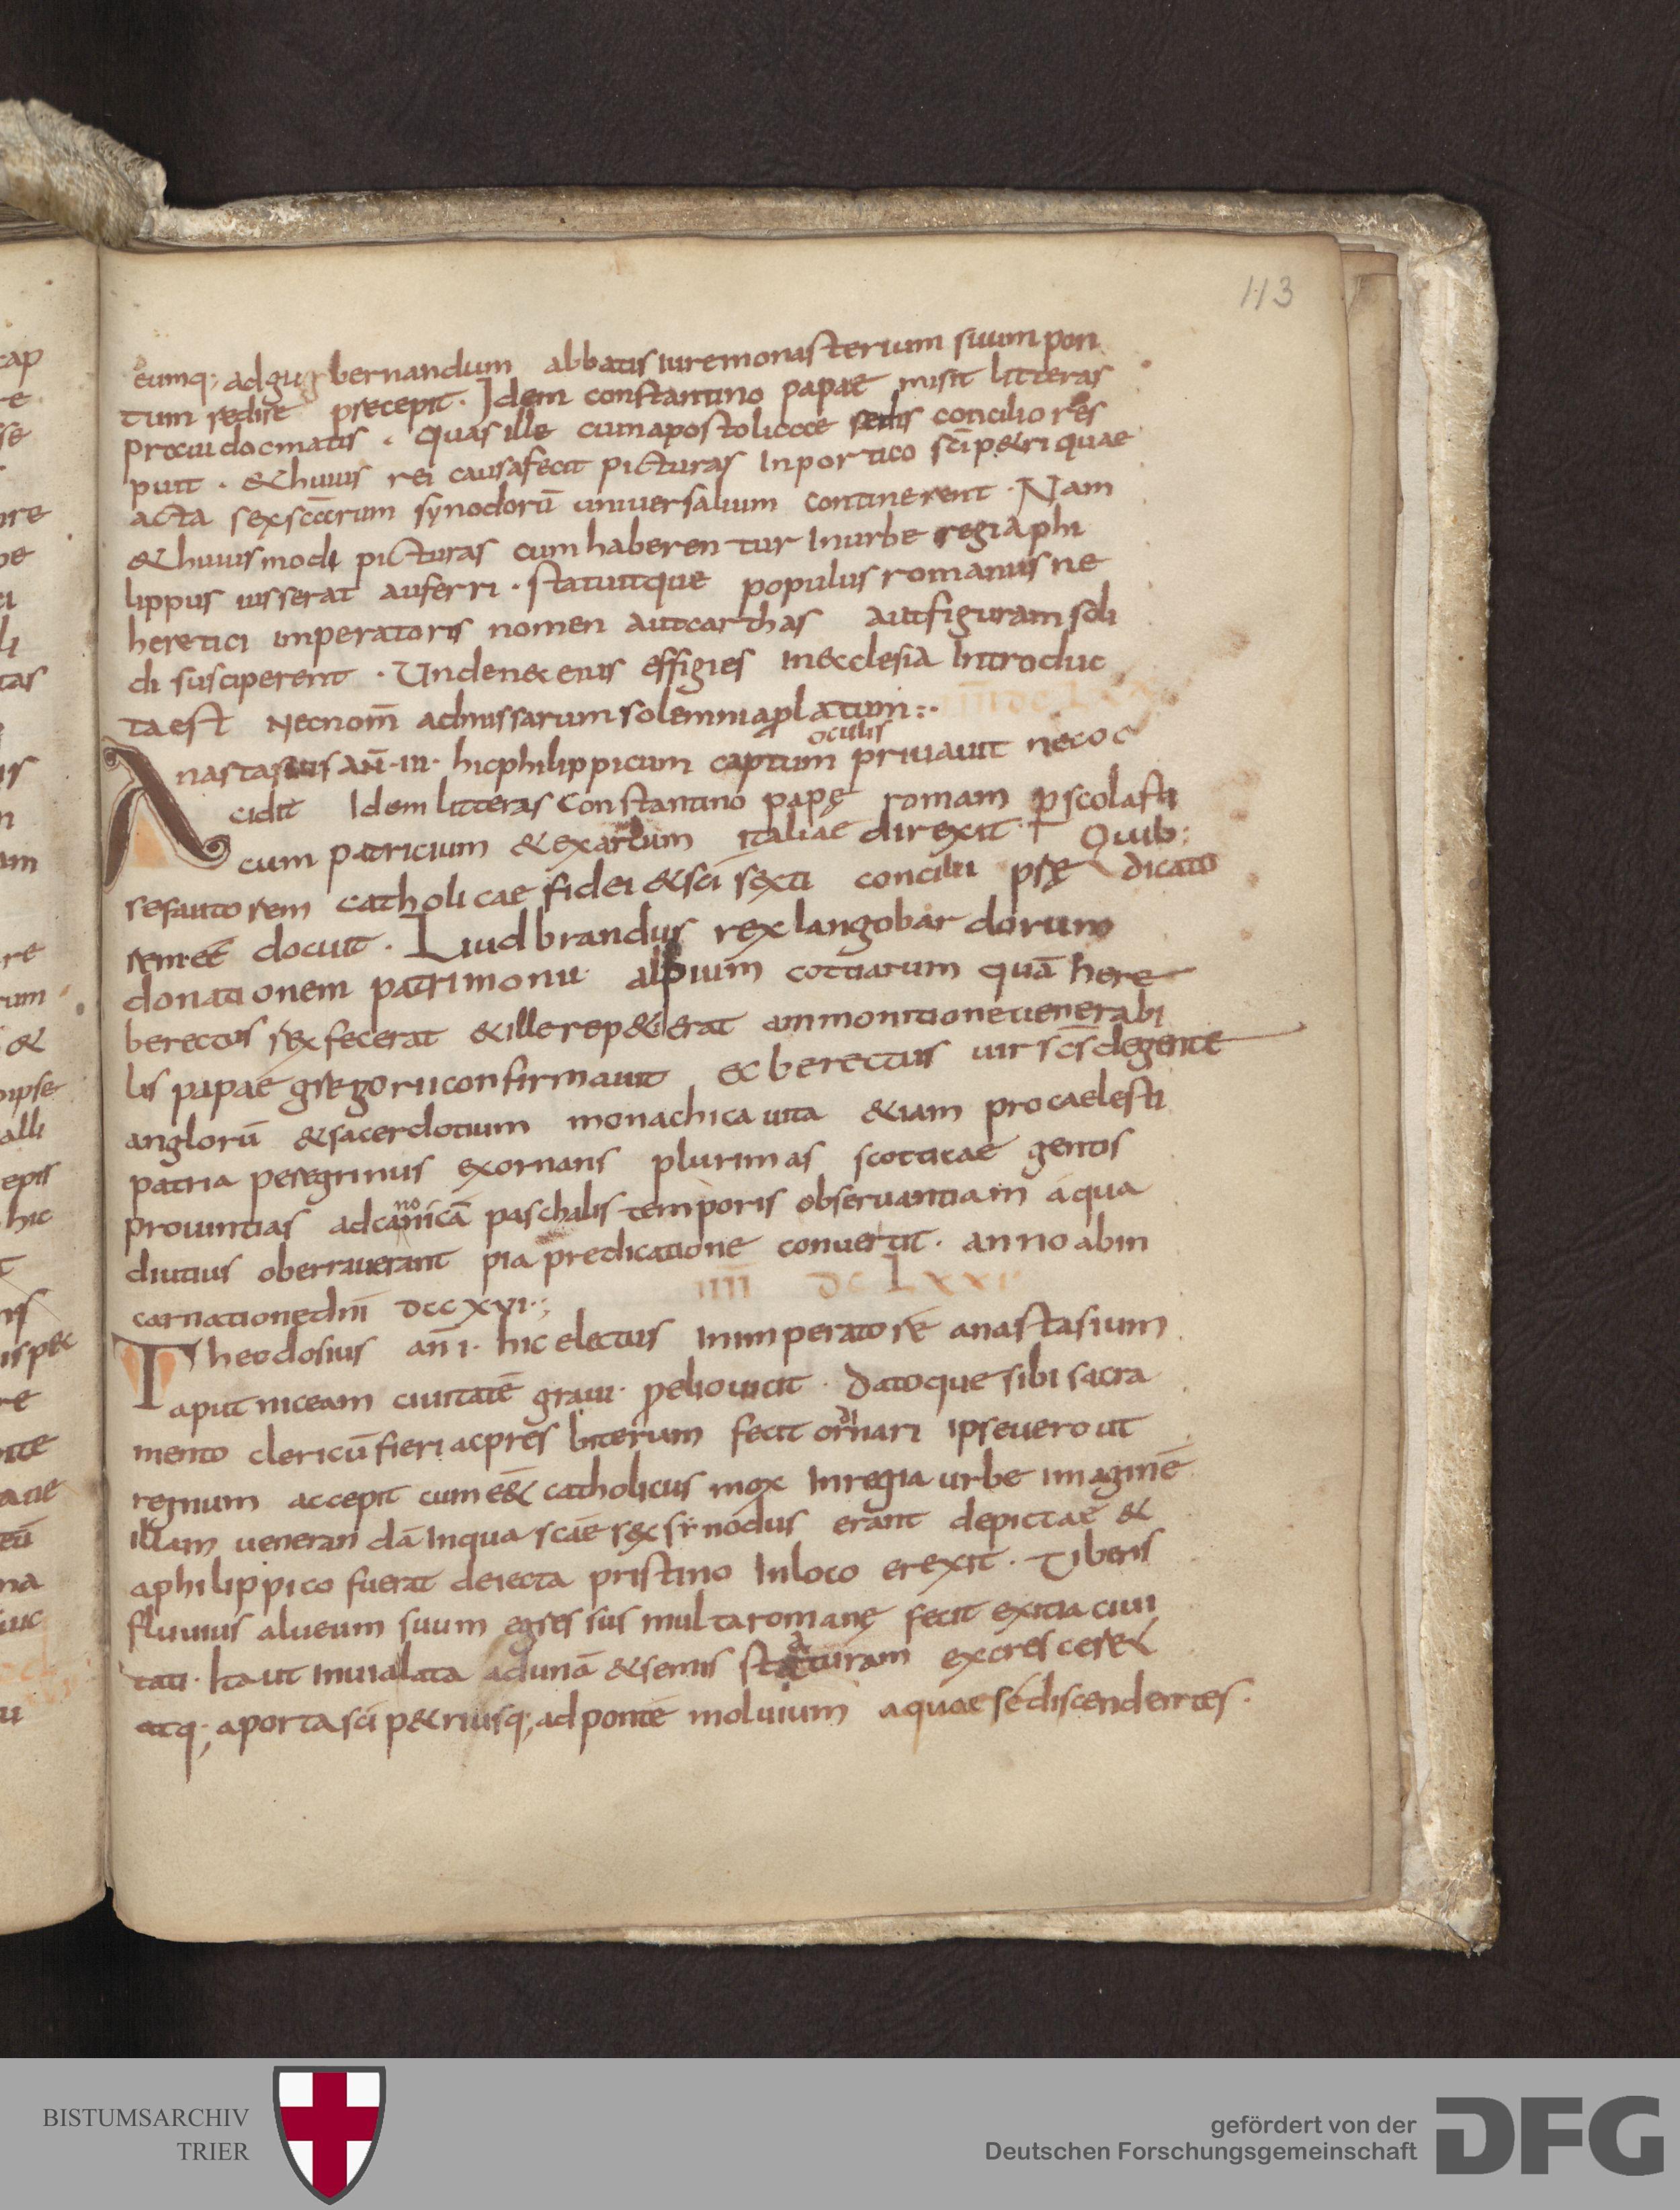 113
eumq; adgubernandum abbatis iure monasterium suum pon
tum redire precepit. Idem constantino papae misit litteras
praui docmatis. Quas ille cum apostolicae sedis concilio res
puit. & huius rei causa fecit picturas In portico sc̄i p&ri quae
acta sex sc̄orum synodorū uniuersalium continerent. Nam
& huiusmodi picturas cum haberentur In urbe regia phi
lippus iusserat auferri. statuitque populus romanus ne
heretici imperatoris nomen aut carthas aut figuram soli
di susciperent. Unde nec eius effigies in ecclesia Introduc
ta est Nec nom̄ ad missarum solemnia platum:.
IIII DC LXX
oculis
Anastasius AN̄. III. hic philippicum captum priuauit nec oc
cidit Idem litteras constantino papę romam p scolasti
cum patricium & exarcum italiae direxit Quib;
se fautorem catholicae fidei & sc̄i sexti concilii pdicato
rem eē docuit. Liudbrandus rex langobardorum
donationem patrimonii alpium cottiarum quā here
berectus rex fecerat & ille rep&ierat ammonitione uenerabi
lis papae gregorii confirmauit ecberectus uir sc̄s de gente
anglorū & sacerdotium monachica uita &iam pro caelesti
patria peregrinus exornans plurimas scotticae gentis
prouintias ad canonicā paschalis temporis obseruantiam a qua
diutius oberrauerant pia predicatione conuertit. anno ab in
carnatione dnī DCCXVI.;
IIII DC LXXI
Theodosius an̄ I. hic electus In imperatore anastasium
aput niceam ciuitatē graui pelio uicit. Datoque sibi sacra
mento clericū fieri ac presbiterum fecit ordinari ipse uero ut
regnum accepit cum eē& catholicus mox In regia urbe imaginē
illam uenerandā In qua scae sex synodus erant depictae &
a philippico fuerat deiecta pristino In loco erexit. Tiberis
fluuius alueum suum egressus multa romanę fecit exitia ciui
tati. Ita ut in uia lata ad unā & semis staturam excrescer&
atq; a porta sc̄i p&ri usq; ad pontē moluium aquae se discendentes.
ap
re
se
ore
pe
li
tas
is
n
am
re
rum
&
ipse
alli
epis
hic
re
BISTUMSARCHIV
TRIER
gefördert von der
Deutschen Forschungsgemeinschaft
DFG